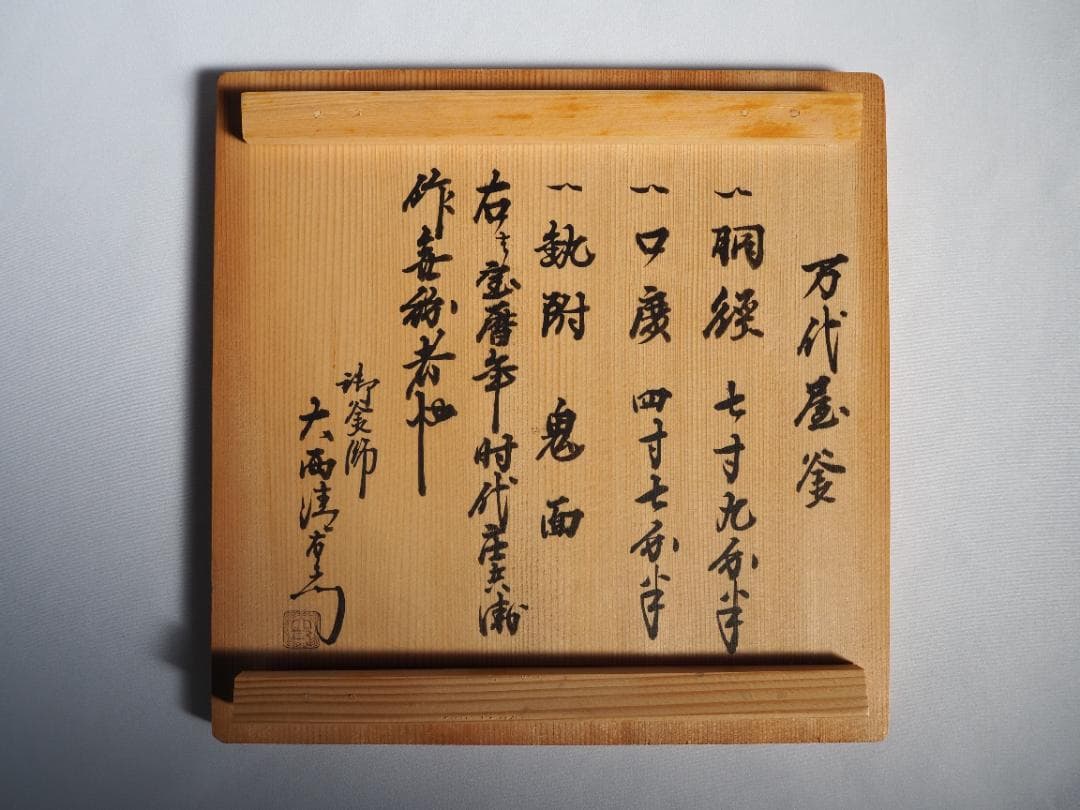 万代屋釜
一胴徑 七寸九分半
一口廣 四寸七分半
一釻附 鬼面
右者宝暦年时代庄兵衛
作無紛者也
御釜師
大西清右衛門